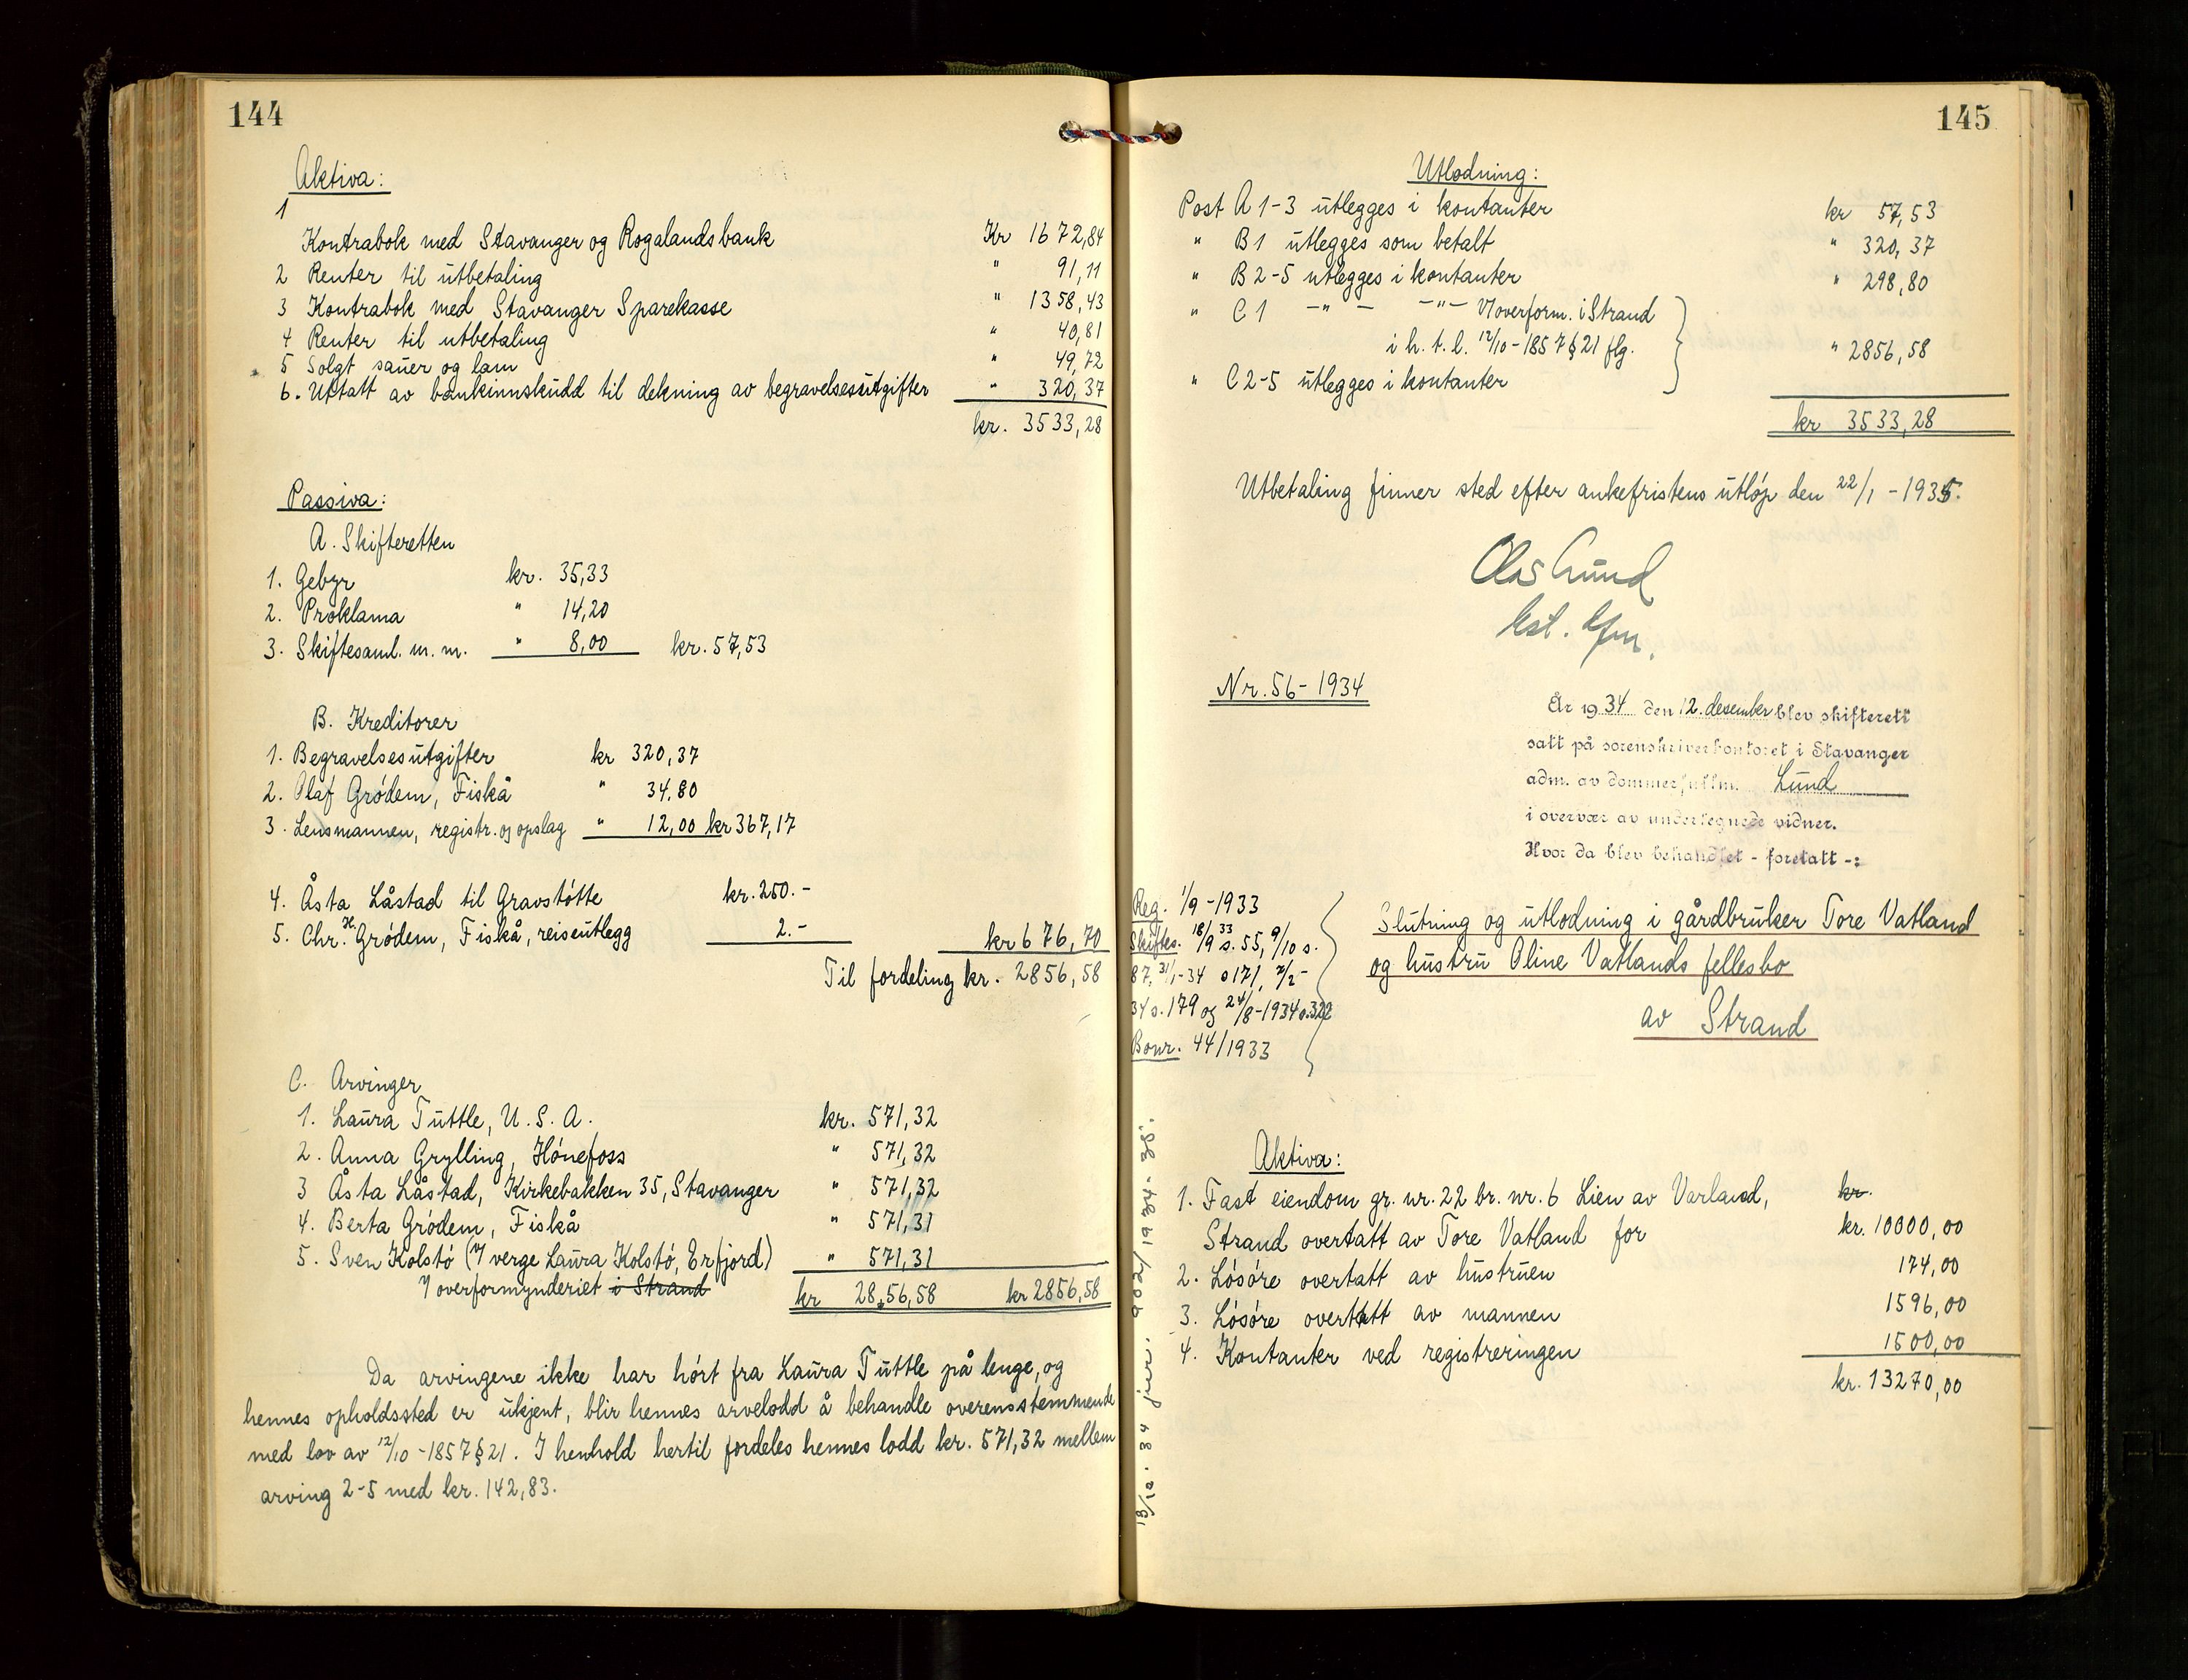 144
Aktiva:
1
Kontrabok med Stavanger og Rogalandsbank Kr 1672,84
2 Renter til utbetaling " 91,11
3 Kontrabok med Stavanger Sparekasse " 1358,43
4 Renter til utbetaling " 40,81
5 Solgt sauer og lam " 49,72
6. Uttatt av bankinnskudd til dekning av begravelsesutgifter " 320,37
kr. 3533,28
Passiva:
A. Skifteretten
1. Gebyr kr. 35,33
2. Proklama " 14,20
3. Skiftesaml. m. m. " 8,00 kr. 57,53
B. Kreditorer
1. Begravelsesutgifter kr 320,37
2. Olaf Grödem, Fiskå " 34,80
3. Lensmannen, registr. og opslag " 12,00 kr 367,17
4. Åsta Låstad til Gravstötte kr. 250.-
5. Chr. H. Grödem, Fiskå, reiseutlegg 2.- kr 676,70
Til fordeling kr. 2856,58
C. Arvinger
1. Laura Tuttle, U. S. A. kr. 571,32
2. Anna Grylling, Hönefoss " 571,32
3 Åsta Låstad, Kirkebakken 35, Stavanger " 571,32
4. Berta Grödem, Fiskå " 571,31
5. Sven Kolstö (V/ verge Laura Kolstö, Erfjord) " 571,31
V/ overformynderiet i Strand kr 28,56,58 kr 2856,58
Da arvingene ikke har hört fra Laura Tuttle på lenge, og
hennes opholdssted er ukjent, blir hennes arvelodd å behandle overensstemmende
med lov av 12/10 - 1857 § 21. I henhold hertil fordeles hennes lodd kr. 571,32 mellem
arving 2-5 med kr. 142,83.
145
Utlodning:
Post A 1-3 utlegges i kontanter kr 57,53
" B 1 utlegges som betalt " 320,37
" B 2-5 utlegges i kontanter " 298,80
" C 1 -"- -"- V/overform. i Strand
i h. t. l. 12/10 - 1857 § 21 flg. " 2856,58
" C 2-5 utlegges i kontanter
kr 3533,28
Utbetaling finner sted efter ankefristens utlöp den 22/1 - 1935.
Lund
Nr. 56 - 1934
År 1934 den 12. desember blev skifterett
satt på sorenskriverkontoret i Stavanger
adm. av dommerfullm. Lund
i overvær av undertegnede vidner.
Hvor da blev behandlet - foretatt -:
Reg. 1/9 - 1933
Skiftes. 18/9 33 s. 55, 9/10 s.
87, 31/1-34 s 171, 7/2 -
34 s. 179 og 24/8 - 1934 s. 322
Bonr. 44/1933
Slutning og utlodning i gårdbruker Tore Vatland
og hustru Oline Vatlands fellesbo
av Strand
Aktiva:
1. Fast eiendom gr. nr. 22 br. nr. 6 Lien av Varland, kr.
Strand overtatt av Tore Vatland for kr. 10000,00
2. Lösöre overtatt av hustruen 174,00
3. Lösöre overtatt av mannen 1596,00
4. Kontanter ved registreringen 1500,00
kr. 13270,00